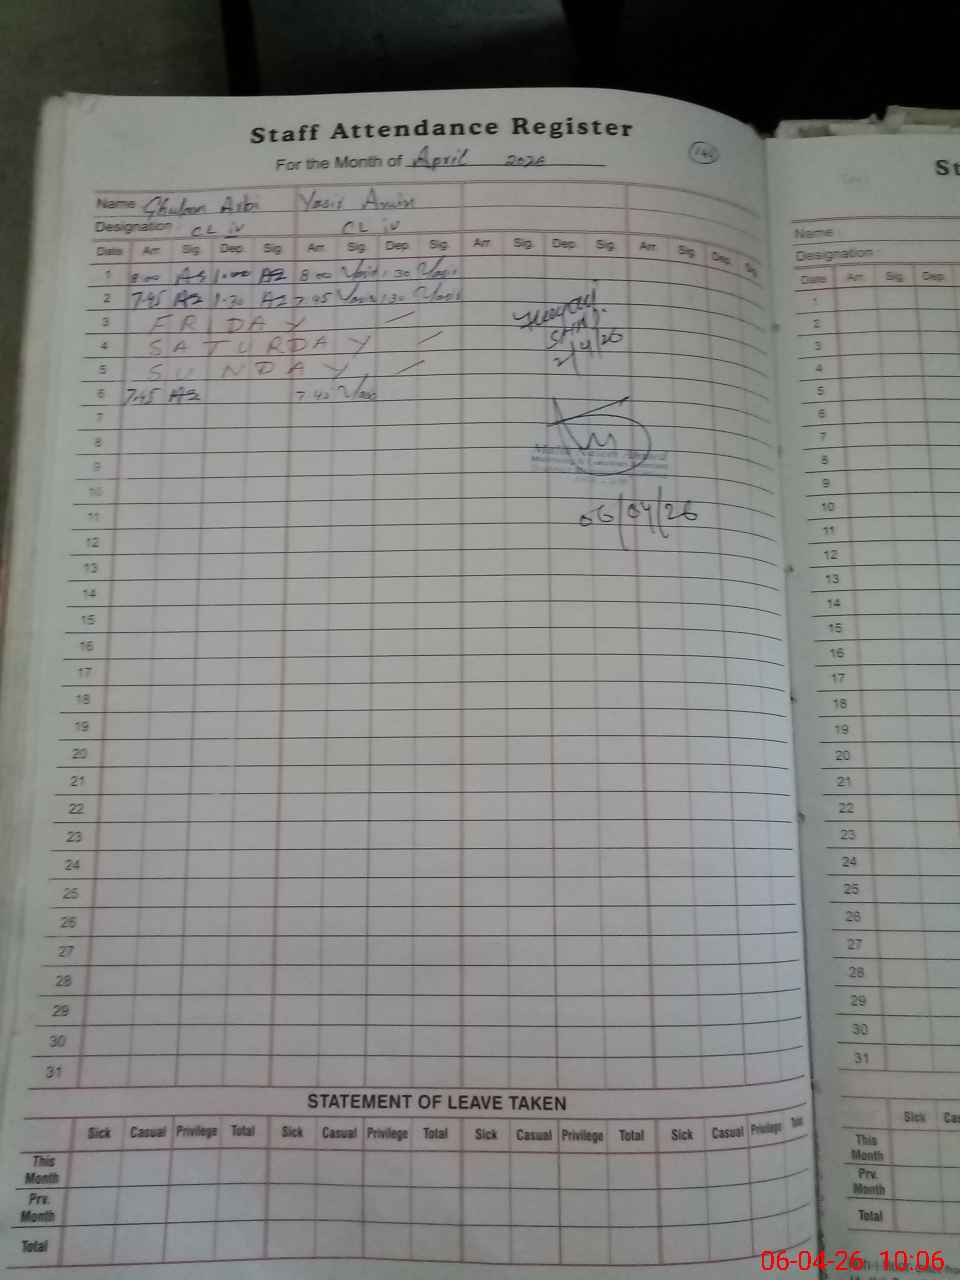 Staff Attendance Register
For the Month of April 2026
St
Name Ghulam Arbi Yasir Amin
Designation CL iv CL iv
Date Arr. Sig. Dep. Sig. Arr. Sig. Dep. Sig. Arr. Sig. Dep. Sig. Arr. Sig. Dep. Sig.
1 8.00 1.00 8 00 Yasir 1 30 Yasir
2 7.45 1.30 7 45 Yasir 1.30 Yasir
3 FRIDAY
4 SATURDAY
5 SUNDAY
6 7.45 7 45 Yasir
7
8
9
10
11
12
13
14
15
16
17
18
19
20
21
22
23
24
25
26
27
28
29
30
31
2/4/26
06/04/26
STATEMENT OF LEAVE TAKEN
Sick Casual Privilege Total Sick Casual Privilege Total Sick Casual Privilege Total Sick Casual Privilege Total
This Month
Prv. Month
Total
Name :
Designation :
Date Arr. Sig. Dep.
1
2
3
4
5
6
7
8
9
10
11
12
13
14
15
16
17
18
19
20
21
22
23
24
25
26
27
28
29
30
31
Sick Cas
This Month
Prv. Month
Total
06-04-26 10:06